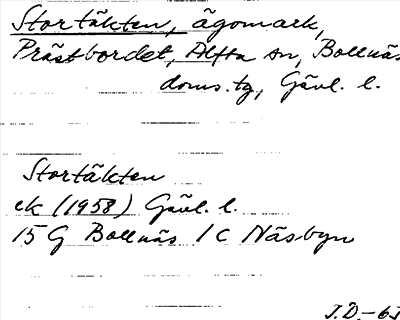 Stortäkten, ägomark,
Prästbordet, Alfta sn, Bollnäs
doms.tg, Gävl. l.
Stortäkten
ek (1958) Gävl. l.
15 G Bollnäs 1 C Näsbyn
J.D.-65